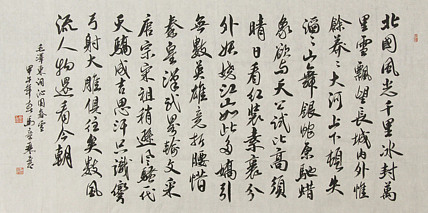 北國風光千里冰封萬
里雪飄望長城內外惟
餘莽莽大河上下頓失
滔滔山舞銀蛇原馳蜡
象欲與天公試比高須
晴日看紅裝素裹分
外妖嬈江山如此多嬌引
無數英雄竞折腰惜
秦皇漢武畧输文采
唐宗宋祖稍遜風騷一代
天驕成吉思汗只識彎
弓射大雕俱往矣數風
流人物還看今朝
毛澤東詞沁園春雪
甲午年